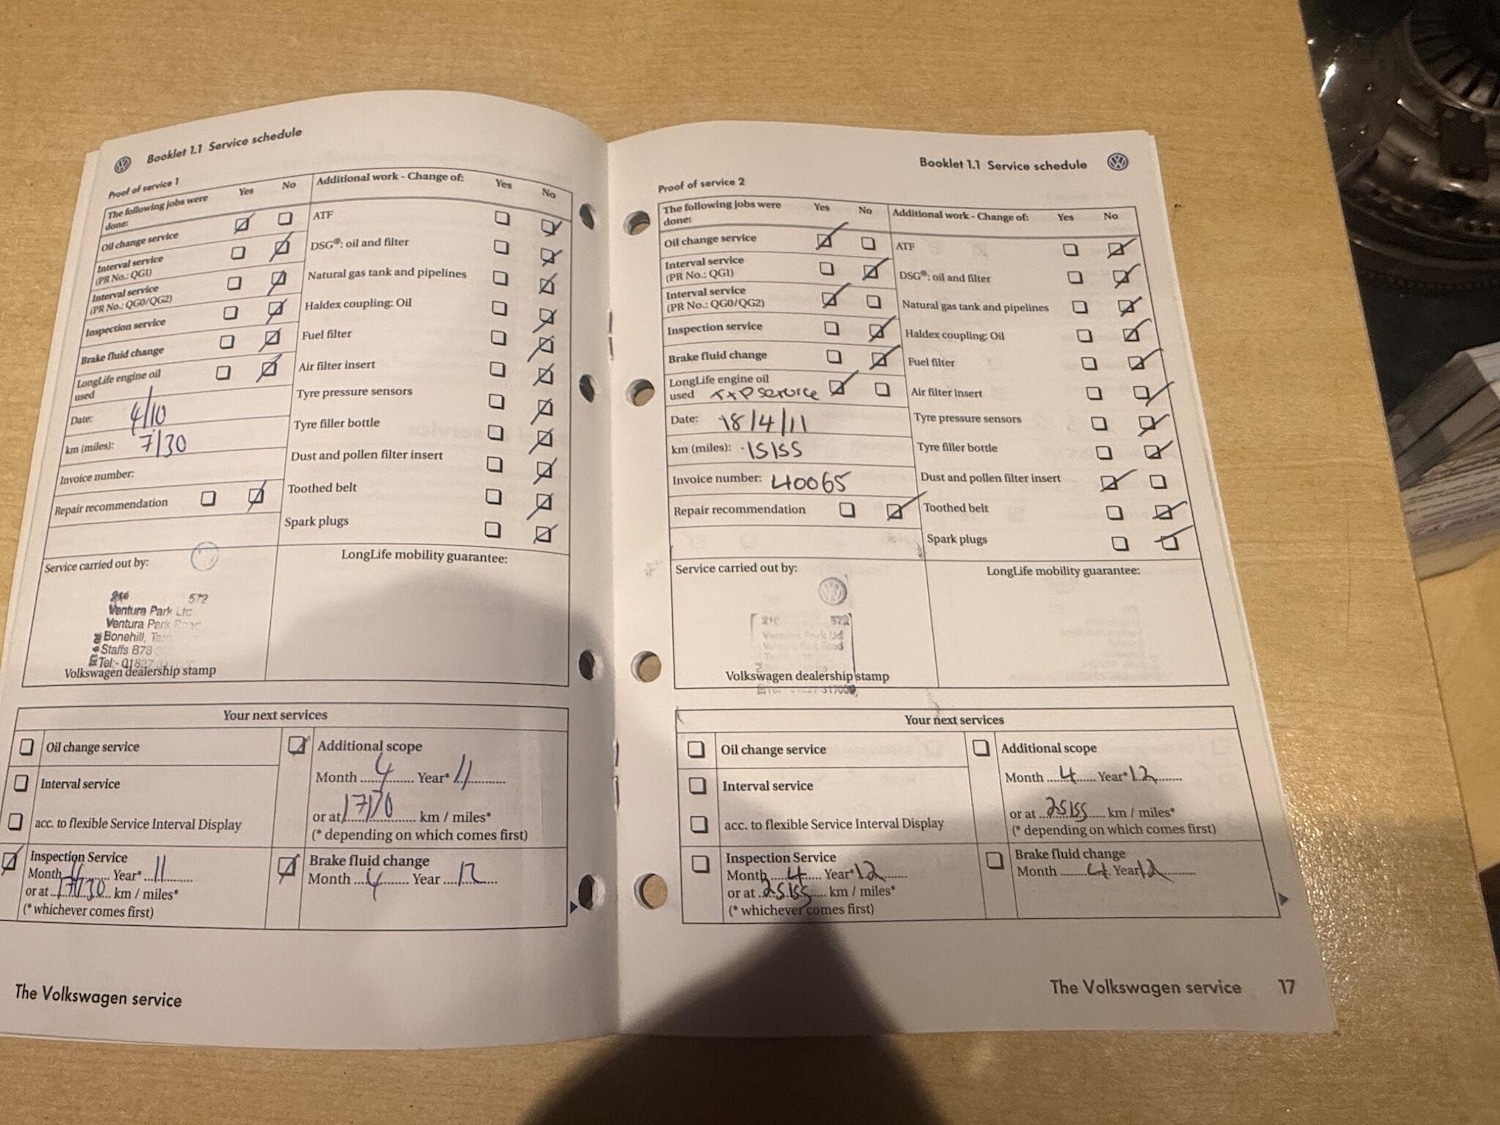 Booklet 1.1 Service schedule
Proof of service 1
The following jobs were done: Yes No
Oil change service
Interval service (PR No.: QG1)
Interval service (PR No.: QG0/QG2)
Inspection service
Brake fluid change
LongLife engine oil used
Date: 4/10
km (miles): 7130
Invoice number:
Repair recommendation
Additional work - Change of: Yes No
ATF
DSG®: oil and filter
Natural gas tank and pipelines
Haldex coupling: Oil
Fuel filter
Air filter insert
Tyre pressure sensors
Tyre filler bottle
Dust and pollen filter insert
Toothed belt
Spark plugs
Service carried out by:
572
Ventura Park Ltd
Ventura Park
Bonehill,
Staffs B78
Tel:-
Volkswagen dealership stamp
LongLife mobility guarantee:
Your next services
Oil change service
Interval service
acc. to flexible Service Interval Display
Inspection Service
Month Year* 11
or at 17130 km / miles*
(* whichever comes first)
Additional scope
Month 4 Year* 11
or at km / miles*
(* depending on which comes first)
Brake fluid change
Month 4 Year 12
The Volkswagen service
Booklet 1.1 Service schedule
Proof of service 2
The following jobs were done: Yes No
Oil change service
Interval service (PR No.: QG1)
Interval service (PR No.: QG0/QG2)
Inspection service
Brake fluid change
LongLife engine oil used service
Date: 18/4/11
km (miles): 15155
Invoice number: 40065
Repair recommendation
Additional work - Change of: Yes No
ATF
DSG®: oil and filter
Natural gas tank and pipelines
Haldex coupling: Oil
Fuel filter
Air filter insert
Tyre pressure sensors
Tyre filler bottle
Dust and pollen filter insert
Toothed belt
Spark plugs
Service carried out by:
572
Volkswagen dealership stamp
LongLife mobility guarantee:
Your next services
Oil change service
Interval service
acc. to flexible Service Interval Display
Inspection Service
Month 4 Year* 12
or at 25155 km / miles*
(* whichever comes first)
Additional scope
Month 4 Year* 12
or at 25155 km / miles*
(* depending on which comes first)
Brake fluid change
Month 4 Year 12
The Volkswagen service 17